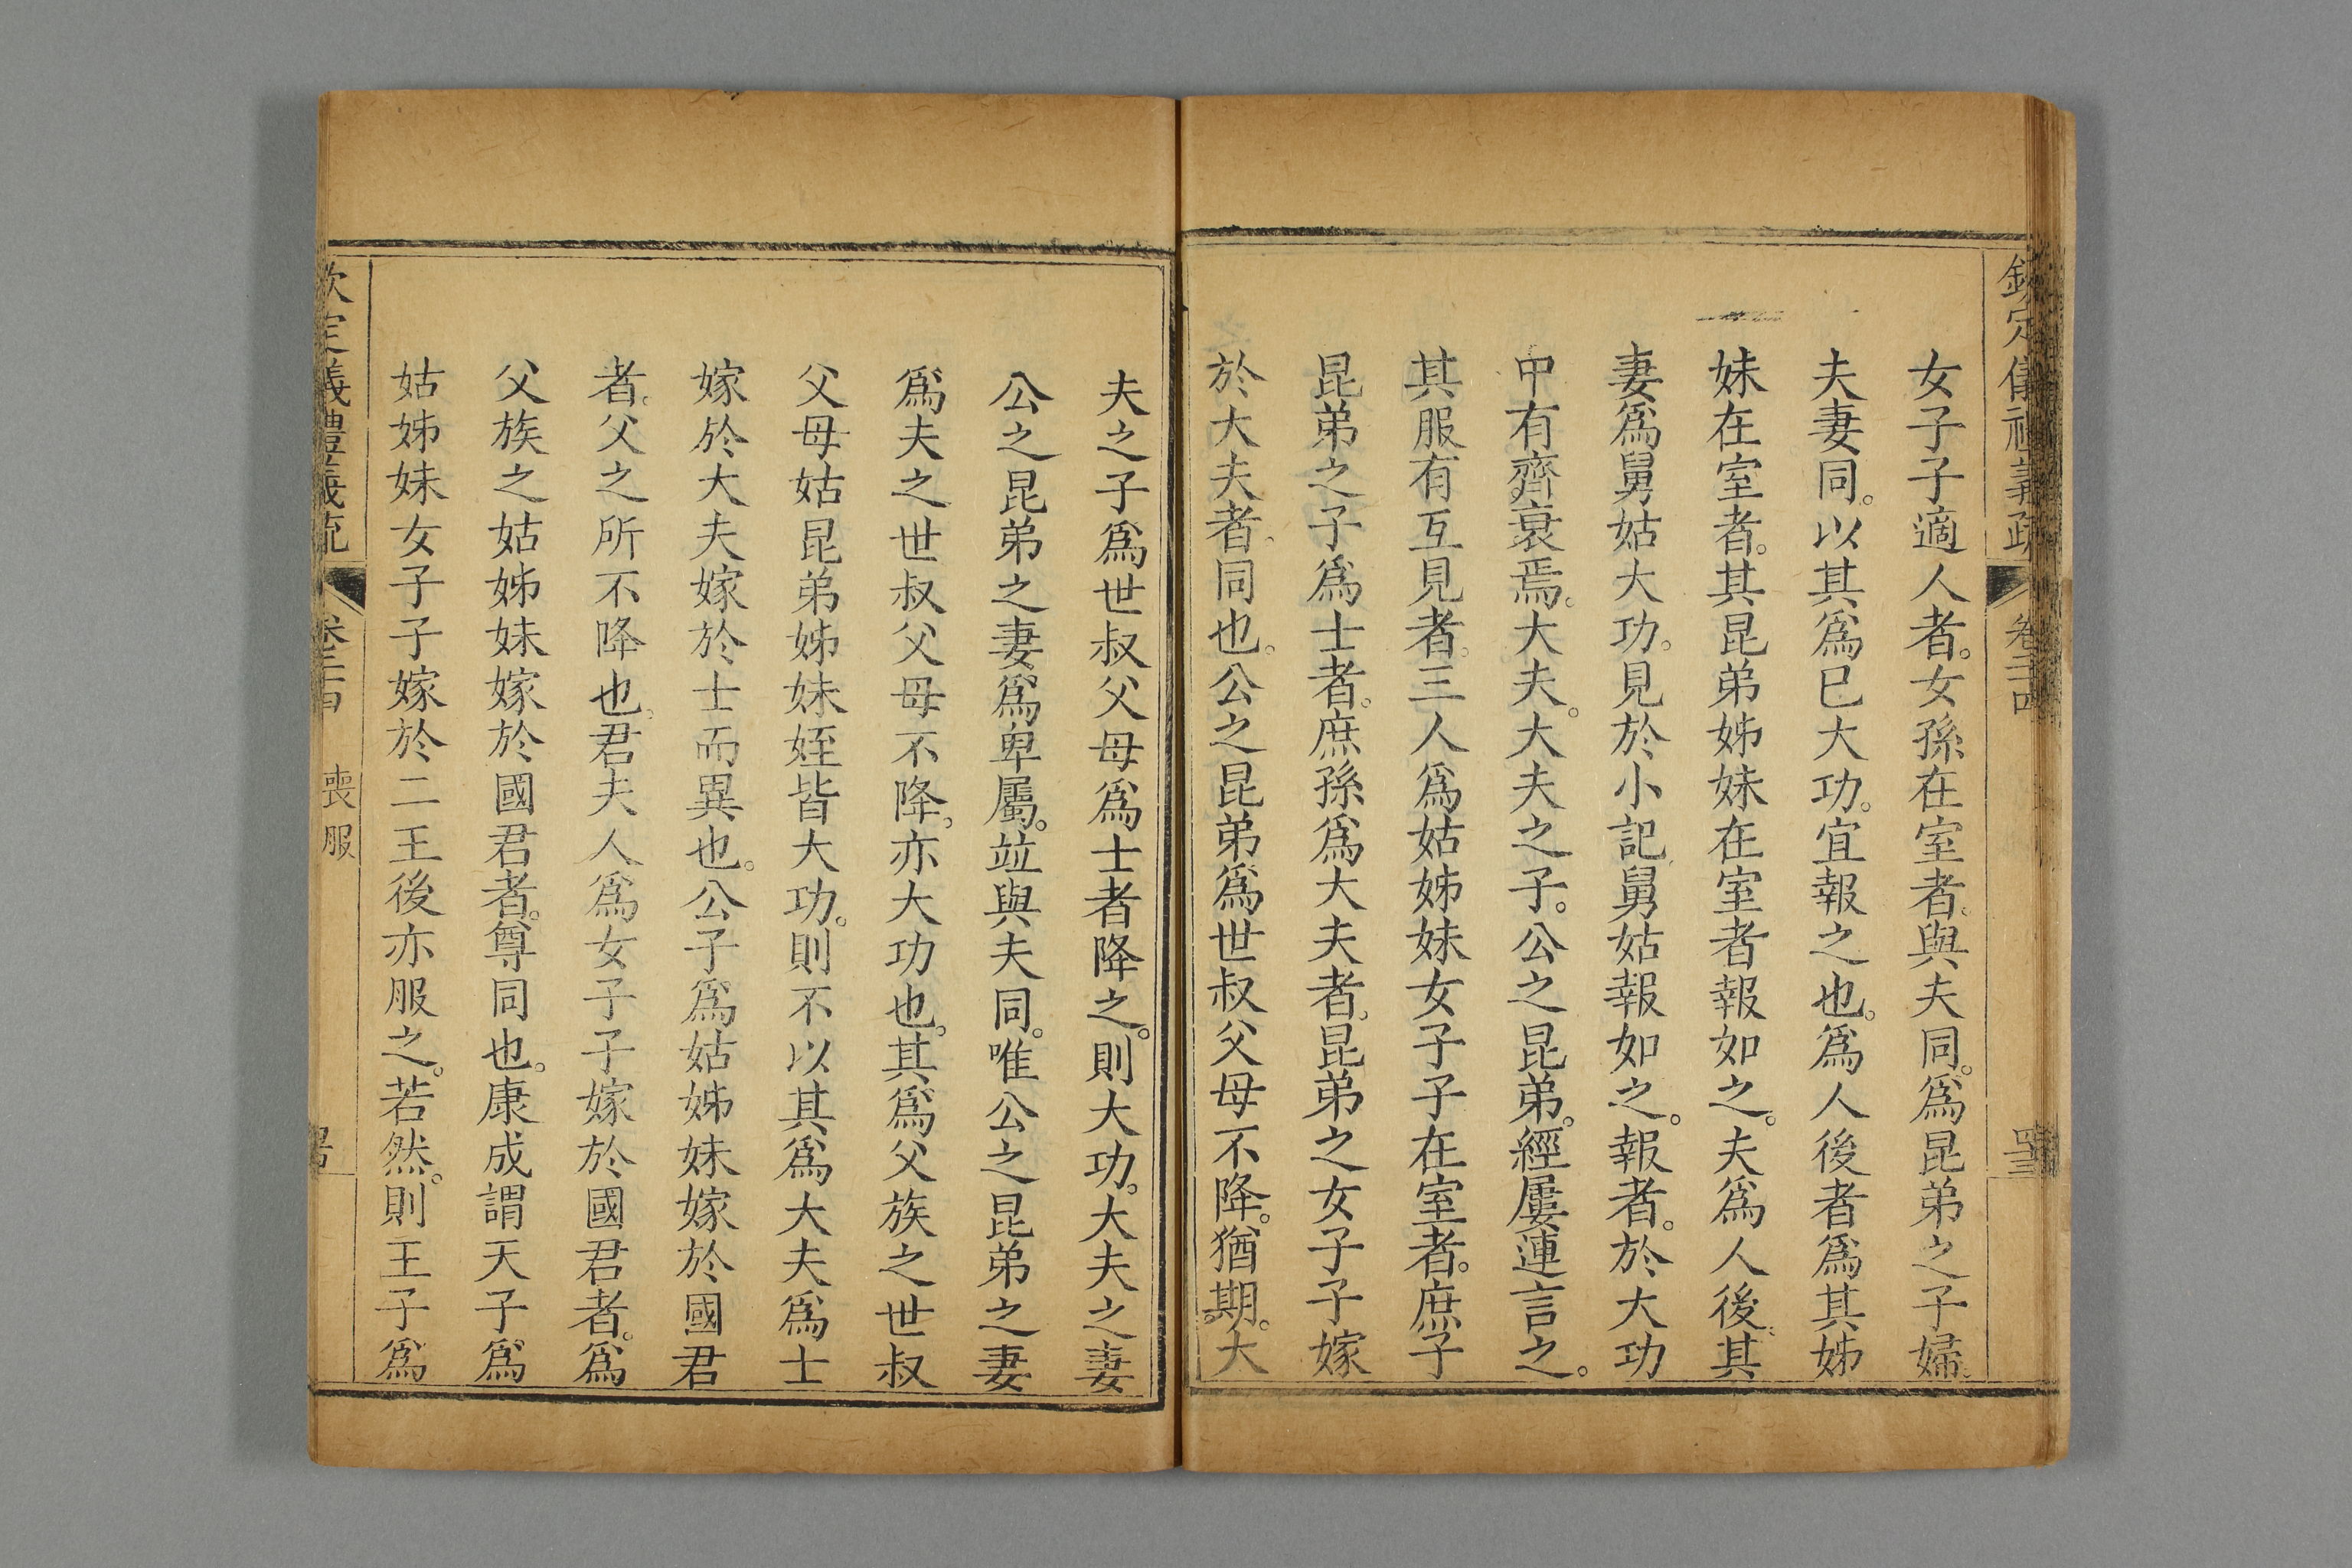 欽定儀禮義疏 卷二十四 四十三
女子子適人者。女孫在室者。與夫同。爲昆弟之子婦。
夫妻同。以其爲已大功。宜報之也。爲人後者爲其姊
妹在室者。其昆弟姊妹在室者報如之。夫爲人後。其
妻爲舅姑大功。見於小記。舅姑報如之。報者。於大功
中有齊衰焉。大夫。大夫之子。公之昆弟。經屢連言之。
其服有互見者。三人爲姑姊妹女子子在室者。庶子
昆弟之子爲士者。庶孫爲大夫者。昆弟之女子子嫁
於大夫者。同也。公之昆弟爲世叔父母不降。猶期。大
夫之子爲世叔父母爲士者降之。則大功。大夫之妻
公之昆弟之妻爲卑屬。竝與夫同。唯公之昆弟之妻
爲夫之世叔父母不降。亦大功也。其爲父族之世叔
父母姑昆弟姊妹姪皆大功。則不以其爲大夫爲士
嫁於大夫嫁於士而異也。公子爲姑姊妹嫁於國君
者。父之所不降也。君夫人爲女子子嫁於國君者。爲
父族之姑姊妹嫁於國君者。尊同也。康成謂天子爲
姑姊妹女子子嫁於二王後亦服之。若然。則王子爲
欽定儀禮義疏 卷二十四 喪服